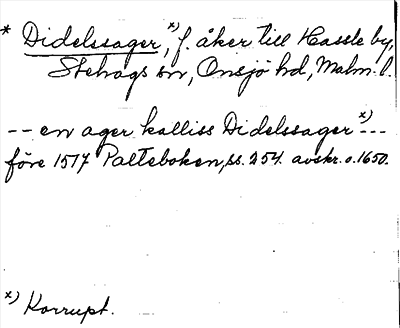 * Didelssager,ˣ⁾ f. åker till Hassle by,
Stehags sn, Onsjö hd, Malm. l.
-- en ager kalliss Didelssagerˣ⁾---
före 1517 Palteboken, ss. 254. avskr. o. 1650.
ˣ⁾ Korrupt.